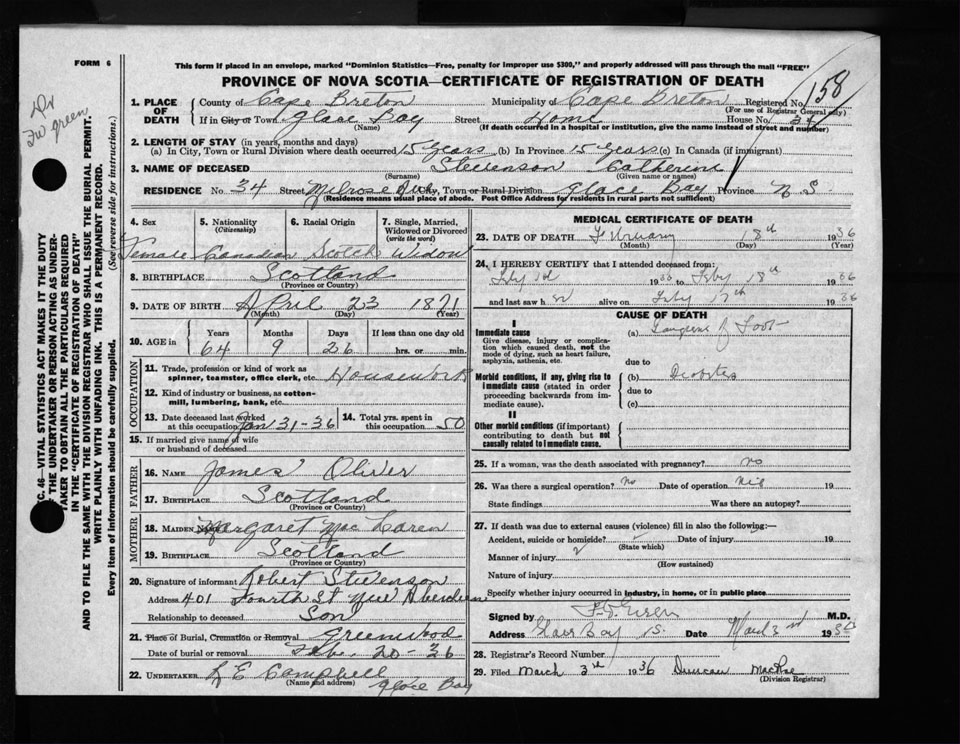 FORM 6
This form if placed in an envelope, marked "Dominion Statistics—Free, penalty for improper use $300," and properly addressed will pass through the mail "FREE"
PROVINCE OF NOVA SCOTIA—CERTIFICATE OF REGISTRATION OF DEATH
158
Dr
F W Green
C. 46—VITAL STATISTICS ACT MAKES IT THE DUTY
OF THE UNDERTAKER OR PERSON ACTING AS UNDER-
TAKER TO OBTAIN ALL THE PARTICULARS REQUIRED
IN THE "CERTIFICATE OF REGISTRATION OF DEATH"
AND TO FILE THE SAME WITH THE DIVISION REGISTRAR WHO SHALL ISSUE THE BURIAL PERMIT.
WRITE PLAINLY WITH UNFADING INK. THIS IS A PERMANENT RECORD.
Every item of information should be carefully supplied. (See reverse side for instructions.)
1. PLACE OF DEATH County of Cape Breton Municipality of Cape Breton Registered No.
(For use of Registrar General only)
If in City or Town Glace Bay Street Home House No. 34
(Name) (If death occurred in a hospital or institution, give the name instead of street and number)
2. LENGTH OF STAY (in years, months and days)
(a) In City, Town or Rural Division where death occurred 15 years (b) In Province 15 years (c) In Canada (if immigrant)
3. NAME OF DECEASED Stevenson Catherine
(Surname) (Given name or names)
RESIDENCE No. 34 Street Milrose Ave City, Town or Rural Division Glace Bay Province N S
(Residence means usual place of abode. Post Office Address for residents in rural parts not sufficient)
4. Sex 5. Nationality (Citizenship) 6. Racial Origin 7. Single, Married, Widowed or Divorced (write the word)
Female Canadian Scotch Widow
8. BIRTHPLACE Scotland
(Province or Country)
9. DATE OF BIRTH April 23 1871
(Month) (Day) (Year)
10. AGE in Years Months Days If less than one day old
64 9 26 hrs. or min.
OCCUPATION
11. Trade, profession or kind of work as
spinner, teamster, office clerk, etc. Housework
12. Kind of industry or business, as cotton-
mill, lumbering, bank, etc.
13. Date deceased last worked
at this occupation Jan 31-36
14. Total yrs. spent in
this occupation 50
15. If married give name of wife
or husband of deceased
FATHER
16. NAME James Oliver
17. BIRTHPLACE Scotland
(Province or Country)
MOTHER
18. MAIDEN NAME Margaret Mac Laren
19. BIRTHPLACE Scotland
(Province or Country)
20. Signature of informant Robert Stevenson
Address 401 Fourth St New Aberdeen
Relationship to deceased Son
21. Place of Burial, Cremation or Removal Greenwood
Date of burial or removal Feb. 20-36
22. UNDERTAKER L E Campbell
(Name and address) Glace Bay
MEDICAL CERTIFICATE OF DEATH
23. DATE OF DEATH February 18th 1936
(Month) (Day) (Year)
24. I HEREBY CERTIFY that I attended deceased from:
Feby 1936 to Feby 18th 1936
and last saw h er alive on Feby 17th 1936
CAUSE OF DEATH
I
Immediate cause
Give disease, injury or complica-
tion which caused death, not the
mode of dying, such as heart failure,
asphyxia, asthenia, etc.
(a) Gangrene of Foot
due to
Morbid conditions, if any, giving rise to
immediate cause (stated in order
proceeding backwards from im-
mediate cause).
(b) Diabetes
due to
(c)
II
Other morbid conditions (if important)
contributing to death but not
causally related to immediate cause.
25. If a woman, was the death associated with pregnancy? no
26. Was there a surgical operation? No Date of operation Nil 19
State findings Was there an autopsy?
27. If death was due to external causes (violence) fill in also the following:—
Accident, suicide or homicide? Date of injury 19
(State which)
Manner of injury
(How sustained)
Nature of injury
Specify whether injury occurred in industry, in home, or in public place
Signed by Green M.D.
Address Glace Bay NS. Date March 2nd 19
28. Registrar's Record Number
29. Filed March 3rd 1936 Duncan MacRae
(Division Registrar)